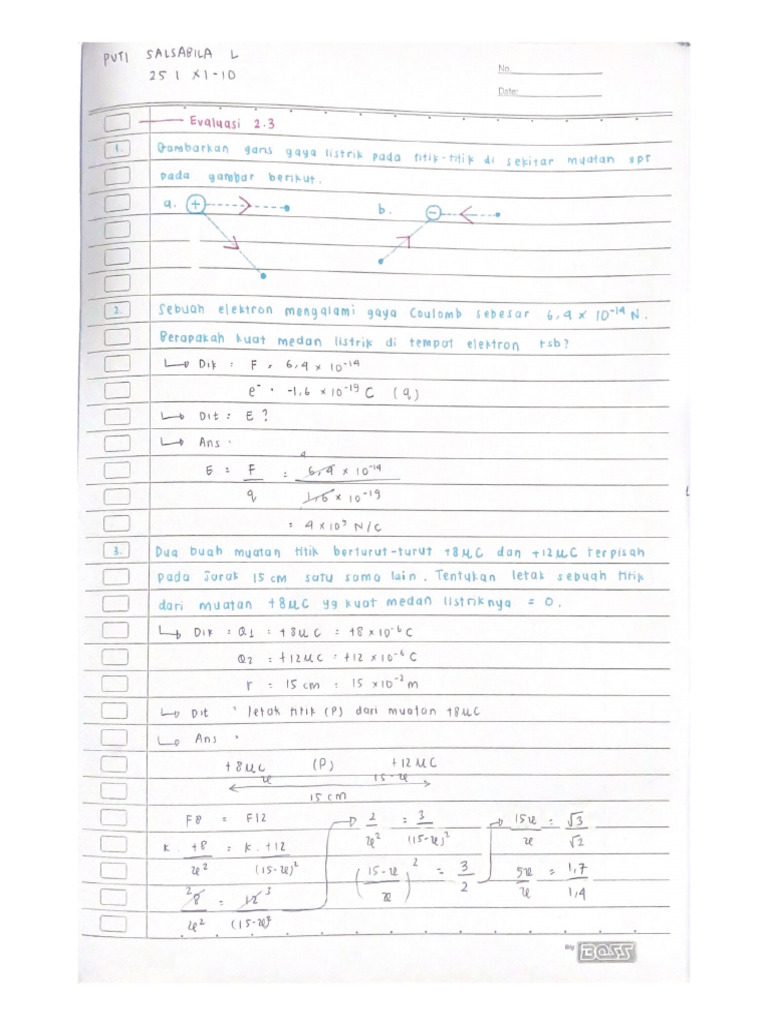 PUTI SALSABILA L
251 X1-10
No.
Date:
Evaluasi 2.3
1. Gambarkan garis gaya listrik pada titik-titik di sekitar muatan spt
pada gambar berikut.
a. + b. -
2. Sebuah elektron mengalami gaya Coulomb sebesar 6,4 x 10⁻¹⁴ N.
Berapakah kuat medan listrik di tempat elektron tsb?
↳ Dik : F = 6,4 x 10⁻¹⁴
e⁻ = -1,6 x 10⁻¹⁹ C (q)
↳ Dit : E ?
↳ Ans :
E = F/q = 6,4 x 10⁻¹⁴ / 1,6 x 10⁻¹⁹
4
= 4 x 10⁵ N/C
3. Dua buah muatan titik berturut-turut +8μC dan +12μC terpisah
pada jarak 15 cm satu sama lain. Tentukan letak sebuah titik
dari muatan +8μC yg kuat medan listriknya = 0.
↳ Dik : Q1 = +8μC = +8 x 10⁻⁶ C
Q2 = +12μC = +12 x 10⁻⁶ C
r = 15 cm = 15 x 10⁻² m
↳ Dit : letak titik (P) dari muatan +8μC
↳ Ans :
+8μC (P) +12μC
x 15-x
15 cm
F8 = F12
k . +8/x² = k . +12/(15-x)²
2 8/x² = 12 3/(15-x)²
2/x² = 3/(15-x)²
(15-x/x)² = 3/2
15x/x = √3/√2
5x/x = 1,7/1,4
By BOSS